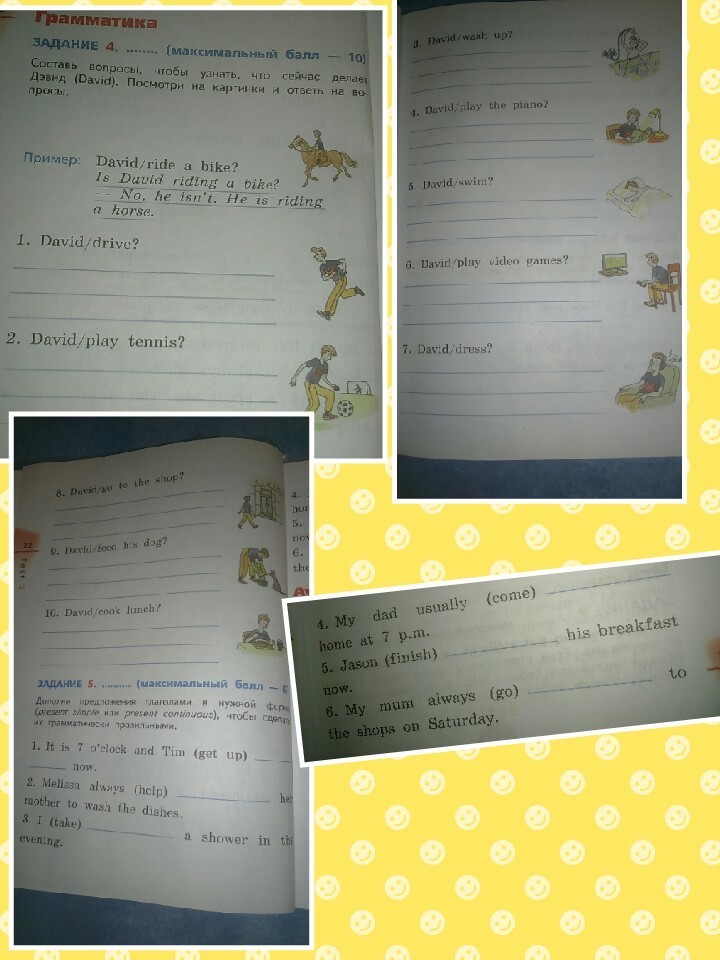 Грамматика
ЗАДАНИЕ 4. ......... (максимальный балл — 10)
Составь вопросы, чтобы узнать, что сейчас делает
Дэвид (David). Посмотри на картинки и ответь на во-
просы.
Пример: David/ride a bike?
Is David riding a bike?
— No, he isn't. He is riding
a horse.
1. David/drive?
2. David/play tennis?
3. David/wash up?
4. David/play the piano?
5. David/swim?
6. David/play video games?
7. David/dress?
8. David/go to the shop?
9. David/feed his dog?
10. David/cook lunch?
22
Test 3
ЗАДАНИЕ 5. ......... (максимальный балл — 6
Дополни предложения глаголами в нужной форме
(present simple или present continuous), чтобы сделать
их грамматически правильными.
1. It is 7 o'clock and Tim (get up)
now.
2. Melissa always (help) her
mother to wash the dishes.
3 I (take) a shower in the
evening.
4. My dad usually (come)
home at 7 p.m.
5. Jason (finish) his breakfast
now.
6. My mum always (go) to
the shops on Saturday.